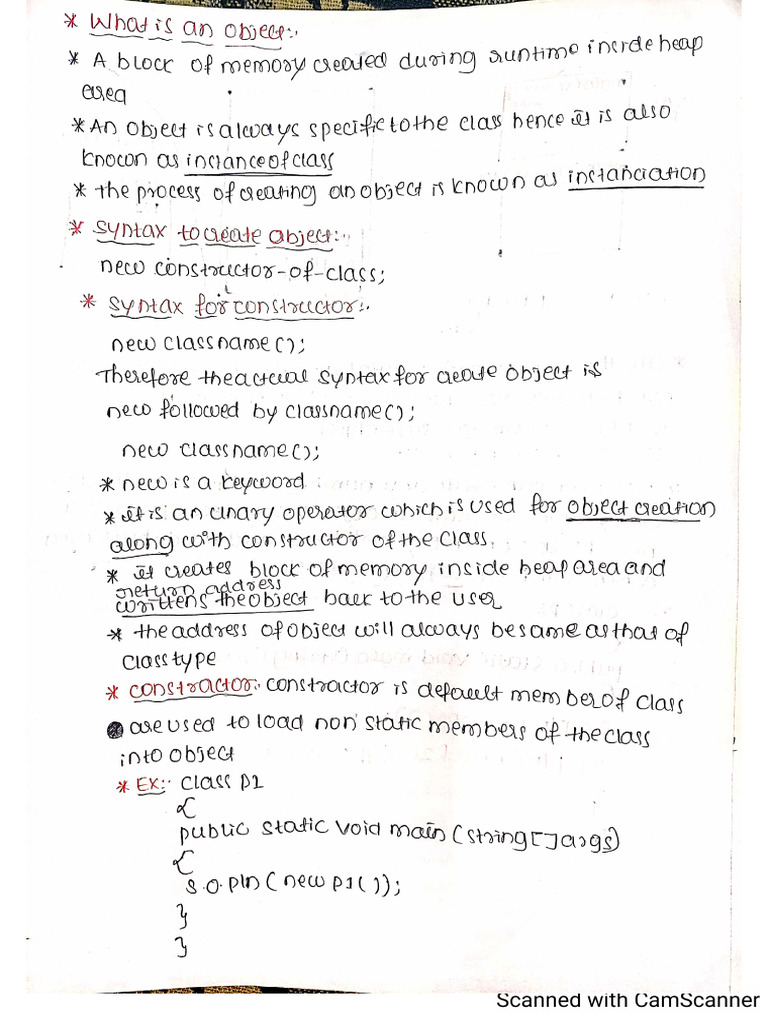 * What is an object:.
* A block of memory created during runtime inside heap
area
* An object is always specific to the class hence it is also
known as instance of class
* the process of creating an object is known as instanciation
* Syntax to create object:.
new constructor-of-class;
* Syntax for constructor:.
new classname();
Therefore the actual syntax for create object is
new followed by classname();
new classname();
* new is a keyword
* it is an unary operator which is used for object creation
along with constructor of the class.
* it creates block of memory inside heap area and
return address
writtens the object back to the user
* the address of object will always be same as that of
class type
* constractor:. constractor is default member of class
are used to load non static members of the class
into object
* EX:. class p1
{
public static void main (string[] args)
{
s.o.pln(new p1());
}
}
Scanned with CamScanner